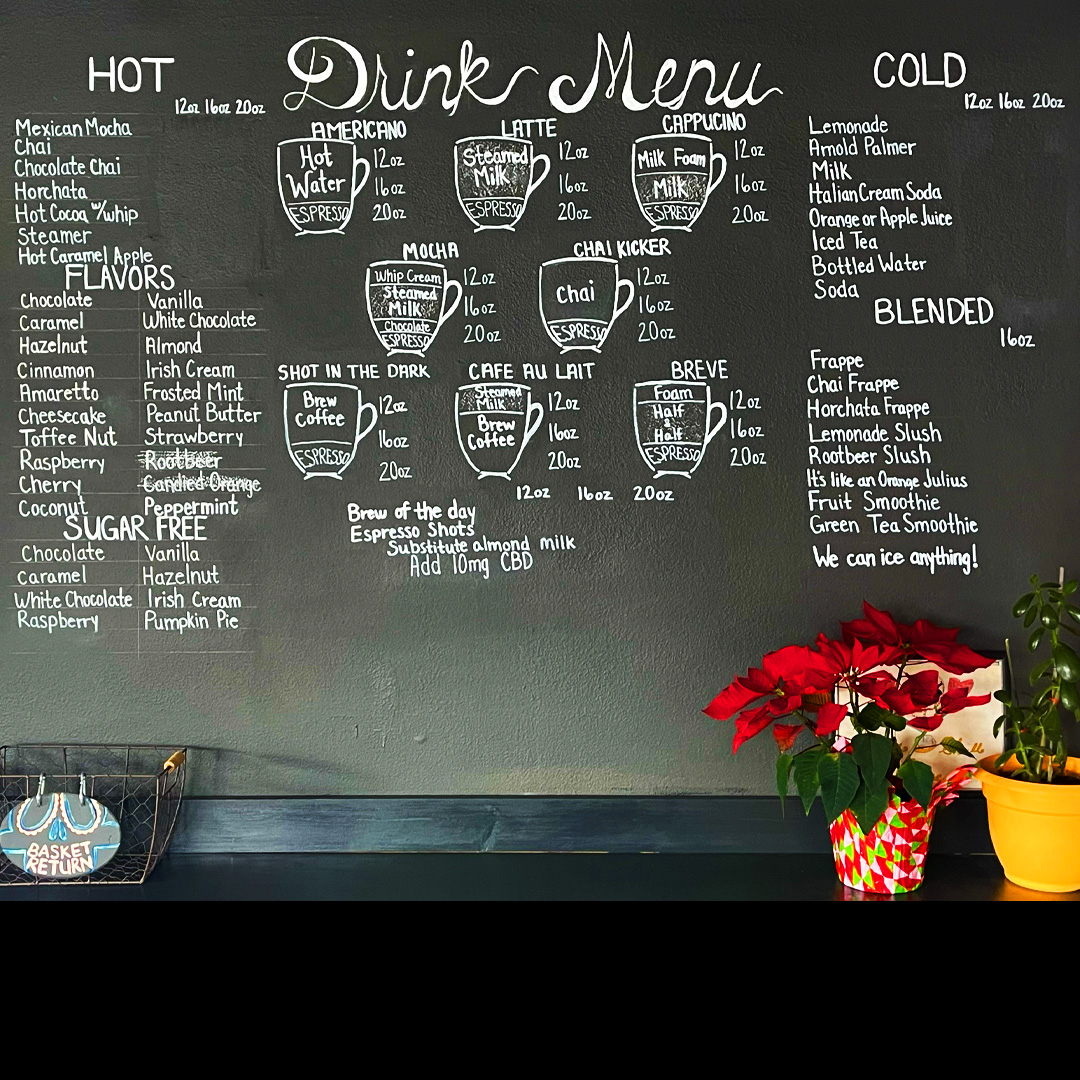 Drink Menu
HOT
12oz 16oz 20oz
Mexican Mocha
Chai
Chocolate Chai
Horchata
Hot Cocoa w/whip
Steamer
Hot Caramel Apple
FLAVORS
Chocolate Vanilla
Caramel White Chocolate
Hazelnut Almond
Cinnamon Irish Cream
Amaretto Frosted Mint
Cheesecake Peanut Butter
Toffee Nut Strawberry
Raspberry Rootbeer
Cherry Candied Orange
Coconut Peppermint
SUGAR FREE
Chocolate Vanilla
Caramel Hazelnut
White Chocolate Irish Cream
Raspberry Pumpkin Pie
AMERICANO
Hot
Water
ESPRESSO
12oz
16oz
20oz
LATTE
Steamed
Milk
ESPRESSO
12oz
16oz
20oz
CAPPUCINO
Milk Foam
Milk
ESPRESSO
12oz
16oz
20oz
MOCHA
Whip Cream
Steamed
Milk
Chocolate
ESPRESSO
12oz
16oz
20oz
CHAI KICKER
Chai
ESPRESSO
12oz
16oz
20oz
SHOT IN THE DARK
Brew
Coffee
ESPRESSO
12oz
16oz
20oz
CAFE AU LAIT
Steamed
Milk
Brew
Coffee
12oz
16oz
20oz
BREVE
Foam
Half
&
Half
ESPRESSO
12oz
16oz
20oz
12oz 16oz 20oz
Brew of the day
Espresso Shots
Substitute almond milk
Add 10mg CBD
COLD
12oz 16oz 20oz
Lemonade
Arnold Palmer
Milk
Italian Cream Soda
Orange or Apple Juice
Iced Tea
Bottled Water
Soda
BLENDED
16oz
Frappe
Chai Frappe
Horchata Frappe
Lemonade Slush
Rootbeer Slush
It's like an Orange Julius
Fruit Smoothie
Green Tea Smoothie
We can ice anything!
BASKET
RETURN